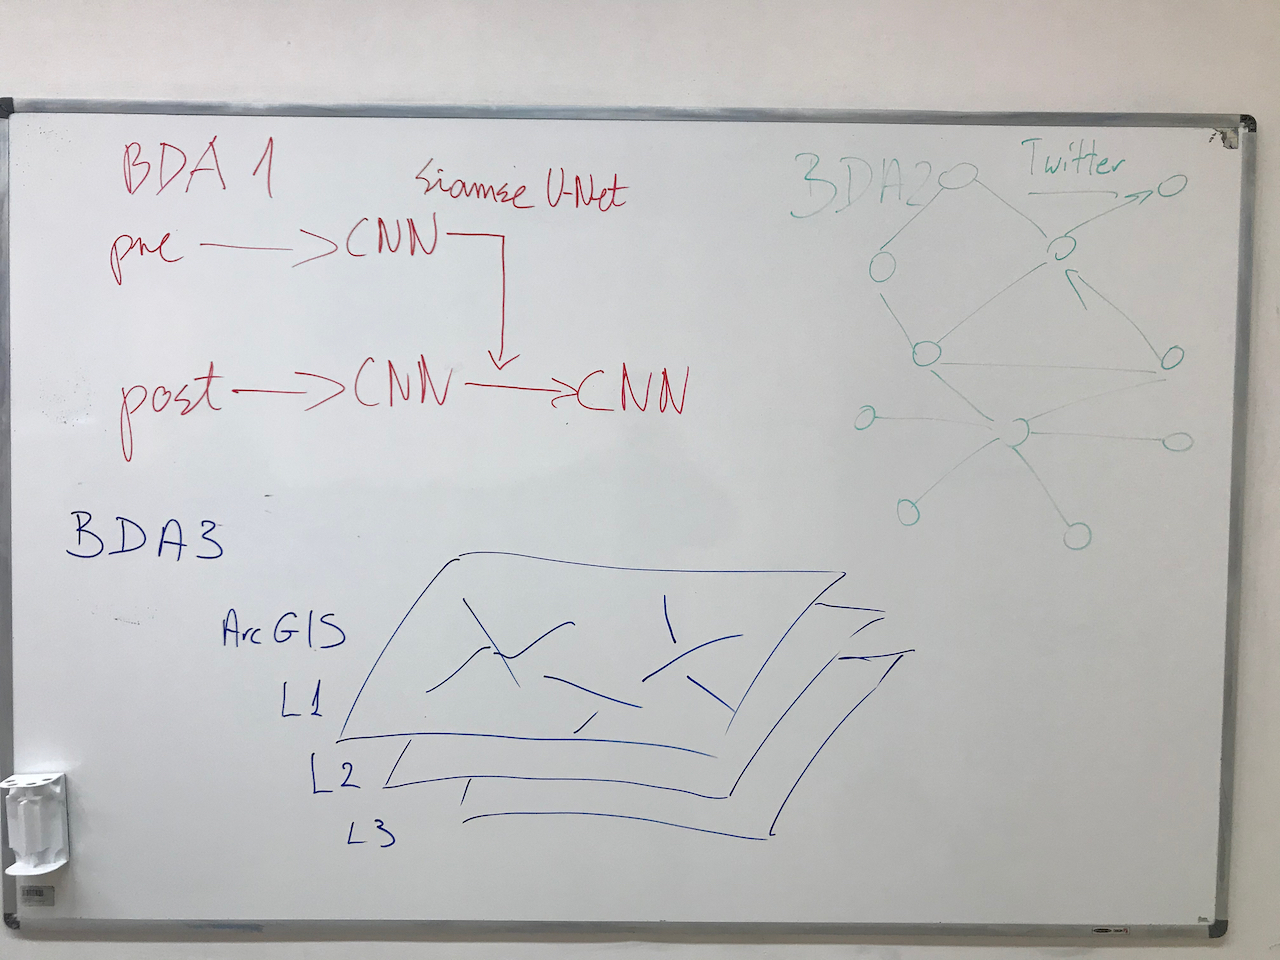 BDA 1
siamse U-Net
pre CNN
post CNN CNN
BDA2
Twitter
BDA3
ArcGIS
L1
L2
L3